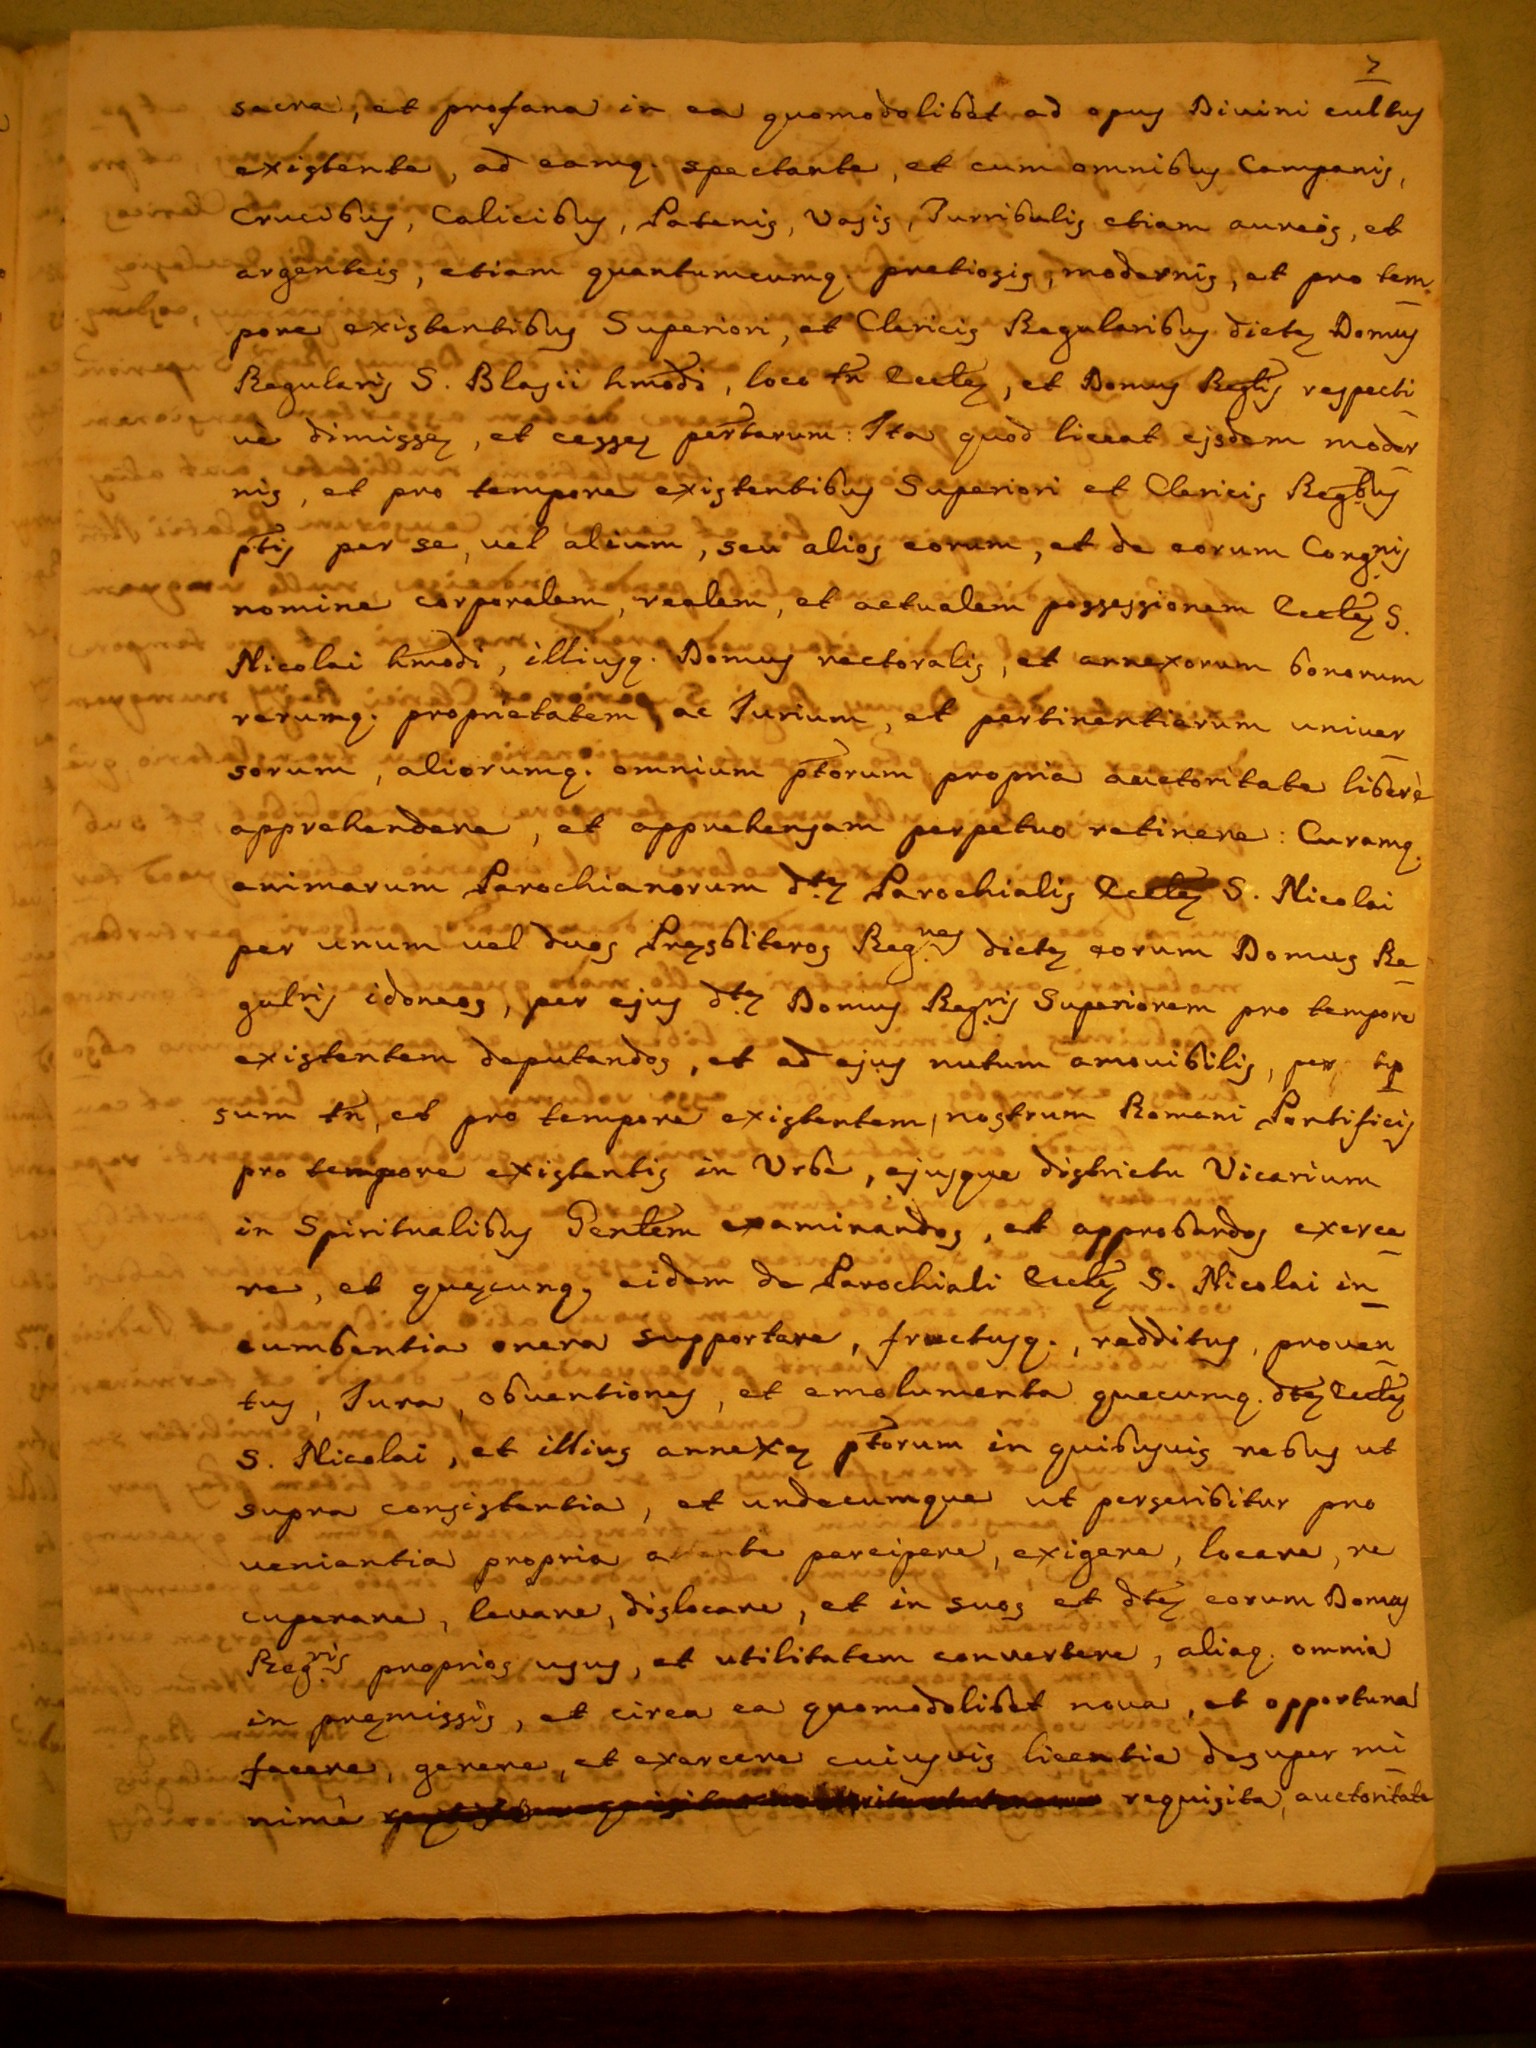 7
sacra, et profana in ea quomodolibet ad opus Divini cultus
existente, ad eamq. spectante, et cum omnibus Campanis,
Crucibus, Calicibus, Patenis, Vasis, Turribulis etiam aureis, et
argenteis, etiam quantumcumq. pretiosis, modernis, et pro tem
pore existentibus Superiori, et Clericis Regularibus dictę Domus
Regularis S. Blasii hmodi, loco tn Ecclę, et Domus Reglis respecti
ve dimissę, et cessę pertarum: Ita quod liceat ejsdem moder
nis, et pro tempore existentibus Superiori et Clericis Regbus
ptis per se, vel alium, seu alios eorum, et de eorum Congnis
nomine corporalem, realem, et actualem possessionem Ecclę S.
Nicolai hmodi, illiusq. Domus rectoralis, et annexorum bonorum
rerumq. proprietatem, ac Jurium, et pertinentiarum univer
sorum, aliorumq. omnium ptorum propria auctoritate liberè
apprehendere, et apprehensam perpetuo retinere: Curamq.
animarum Parochianorum dtę Parochialis Ecclę S. Nicolai
per unum vel duos Pręsbiteros Reg.res dictę eorum Domus Re
gulris idoneos, per ejus dtę Domus Reg.ris Superiorem pro tempore
existentem deputandos, et ad ejus nutum amovibilis, per ip
sum tn, et pro tempore existentem, nostrum Romani Pontificis
pro tempore existentis in Urbe, ejusque districtu Vicarium
in Spiritualibus Genlem examinandos, et approbandos exerce
re, et quęcunq; eidem de Parochiali Ecclę S. Nicolai in
cumbentia onera supportare, fructusq., redditus, proven
tus, Jura, obventiones, et emolumenta quecumq. dtę Ecclę
S. Nicolai, et illius annexę ptorum in quibusvis rebus ut
supra consistentia, et undecumque ut perscribitur pro
venientia propria percipere, exigere, locare, re
cuperare, levare, dislocare, et in suos et dtę eorum Domus
Reg.ris proprios usus, et utilitatem convertere, aliaq. omnia
in pręmissis, et circa ea quomodolibet nova, et opportuna
facere, gerere, et exercere cuiusvis licentia desuper mi
nimè requisita, auctoritate